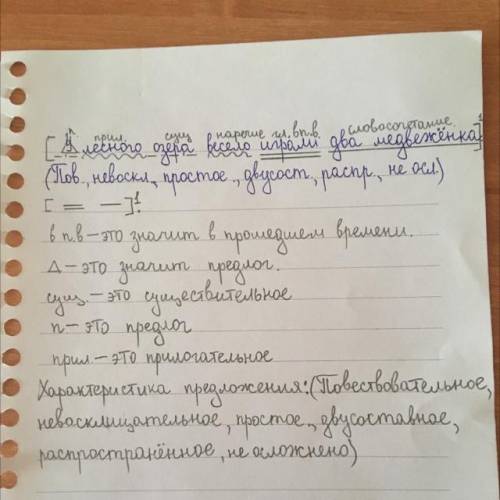 п прил. сущ наречие гл. в п.в. словосочетание
[У лесного озера весело играли два медвежёнка]¹
(Пов., невоскл., простое, двусост., распр., не осл.)
[ = — ]¹.
в п.в – это значит в прошедшем времени.
Δ – это значит предлог.
сущ. – это существительное
п – это предлог
прил – это прилогательное
Характеристика предложения: (Повествовательное,
невасклицательное, простое, двусоставное,
распространённое, не осложнено)